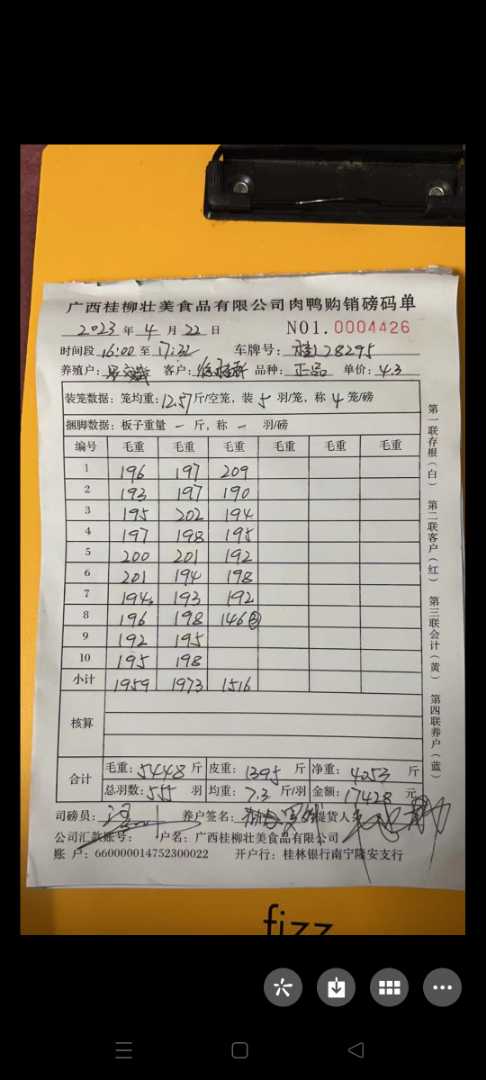 广西桂柳壮美食品有限公司肉鸭购销磅码单
2023 年 4 月 22 日 NO1.0004426
时间段 16:00 至 17:32 车牌号: 桂J28295
养殖户: 客户: 品种: 正品 单价: 4.3
装笼数据: 笼均重: 12.57 斤/空笼, 装 5 羽/笼, 称 4 笼/磅
捆脚数据: 板子重量 - 斤, 称 - 羽/磅
编号 毛重 毛重 毛重 毛重 毛重 毛重
1 196 197 209
2 193 197 190
3 195 202 194
4 197 198 195
5 200 201 192
6 201 194 198
7 194 193 192
8 196 198 146
9 192 195
10 195 198
小计 1959 1973 1516
核算
合计 毛重: 5448 斤 皮重: 1395 斤 净重: 4053 斤
总羽数: 555 羽 均重: 7.3 斤/羽 金额: 17428 元
司磅员: 养户签名: 提货人
公司汇款账号: 户名: 广西桂柳壮美食品有限公司
账 户: 660000014752300022 开户行: 桂林银行南宁隆安支行
第一联存根(白) 第二联客户(红) 第三联会计(黄) 第四联养户(蓝)
fizz